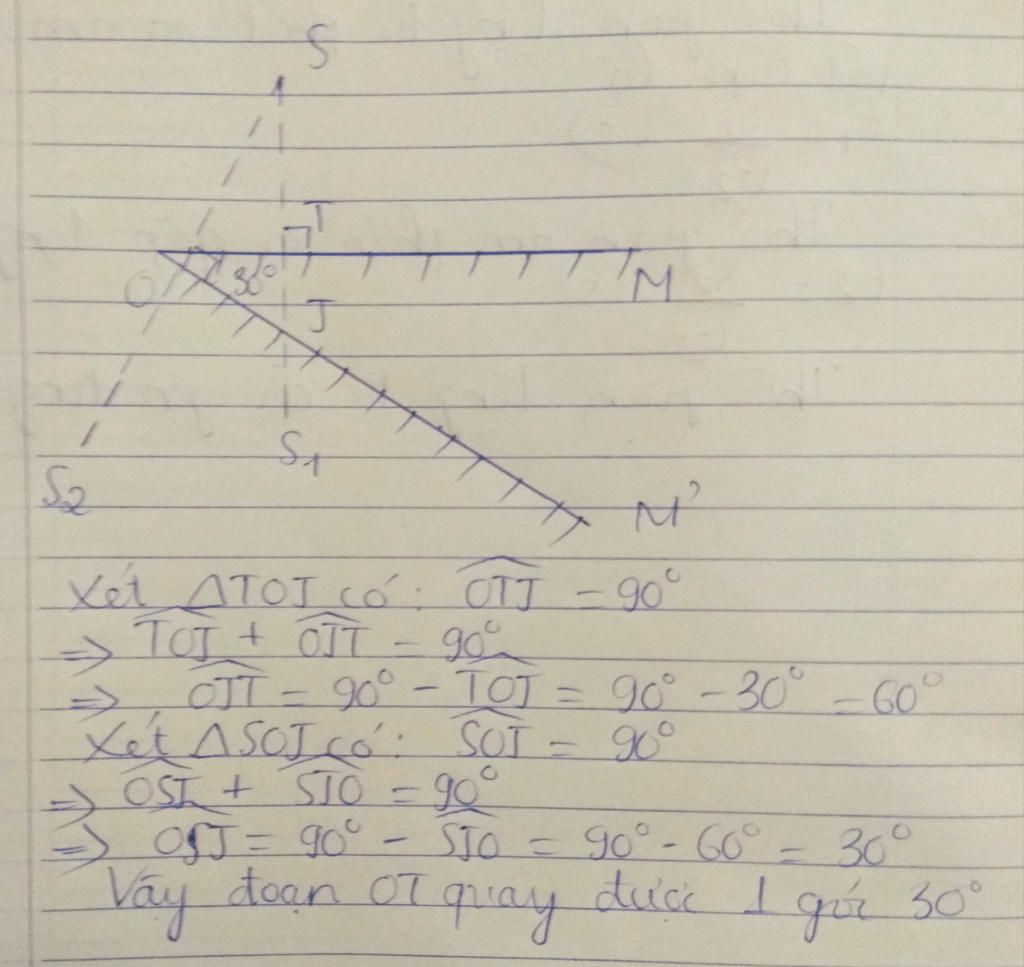 S
I
O
30°
M
J
S₁
S₂
M'
Xét ΔIOJ có: OIJ = 90°
=> IOJ + OJI = 90°
=> OJI = 90° - IOJ = 90° - 30° = 60°
Xét ΔSOJ có: SOJ = 90°
=> OSJ + SJO = 90°
=> OSJ = 90° - SJO = 90° - 60° = 30°
Vậy đoạn OI quay được 1 góc 30°